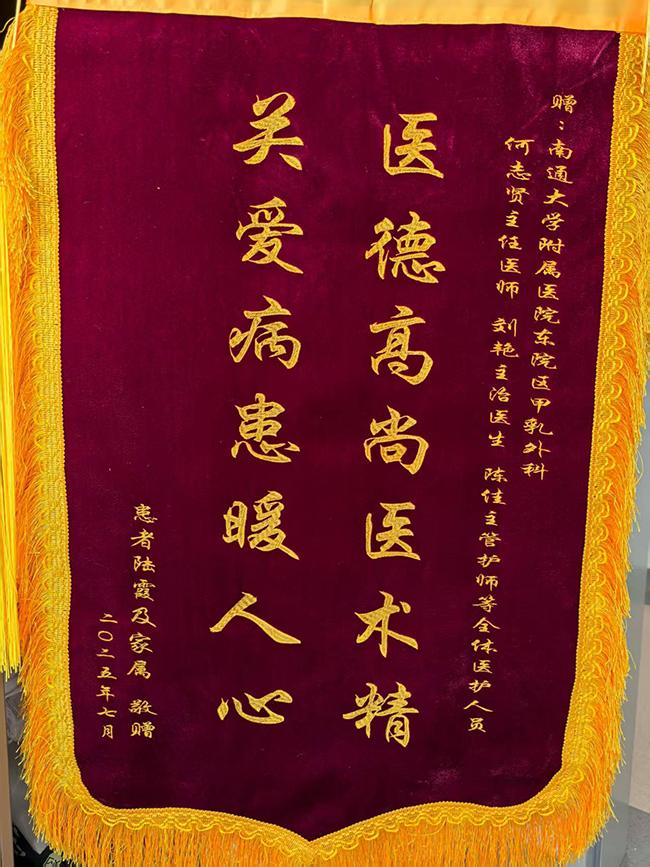 赠：南通大学附属医院东院区甲乳外科
何志贤主任医师 刘艳主治医生 陈佳主管护师等全体医护人员
医德高尚医术精
关爱病患暖人心
患者陆霞及家属 敬赠
二〇二五年七月